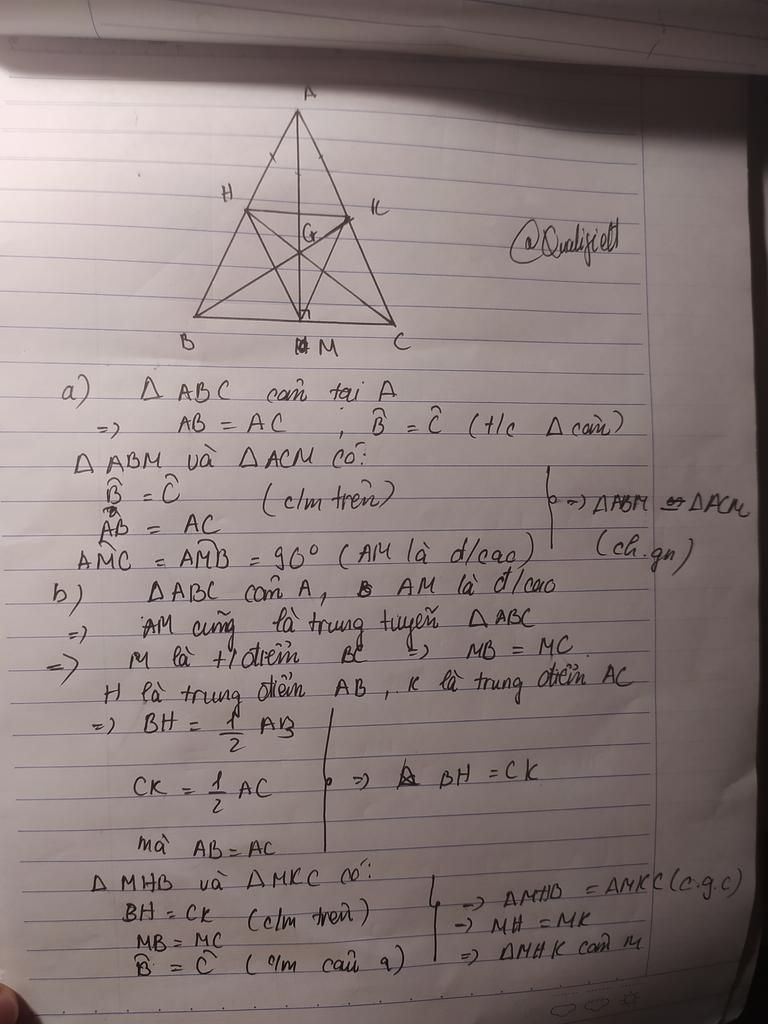 A
H
K
G
@Qualifiett
B
M
C
a) Δ ABC cân tại A
=> AB = AC , B̂ = Ĉ (t/c Δ cân)
Δ ABM và Δ ACM có:
B̂ = Ĉ (c/m trên)
AB = AC
AM̂C = AM̂B = 90° (AM là đ/cao)
=> ΔABM = ΔACM
(ch.gn)
b) ΔABC cân A, AM là đ/cao
=> AM cũng là trung tuyến ΔABC
=> M là t/điểm BC => MB = MC.
H là trung điểm AB, K là trung điểm AC
=> BH = 1/2 AB
CK = 1/2 AC
mà AB = AC
=> BH = CK
Δ MHB và ΔMKC có:
BH = CK (c/m trên)
MB = MC
B̂ = Ĉ (c/m câu a)
=> ΔMHB = ΔMKC (c.g.c)
=> MH = MK
=> ΔMHK cân M